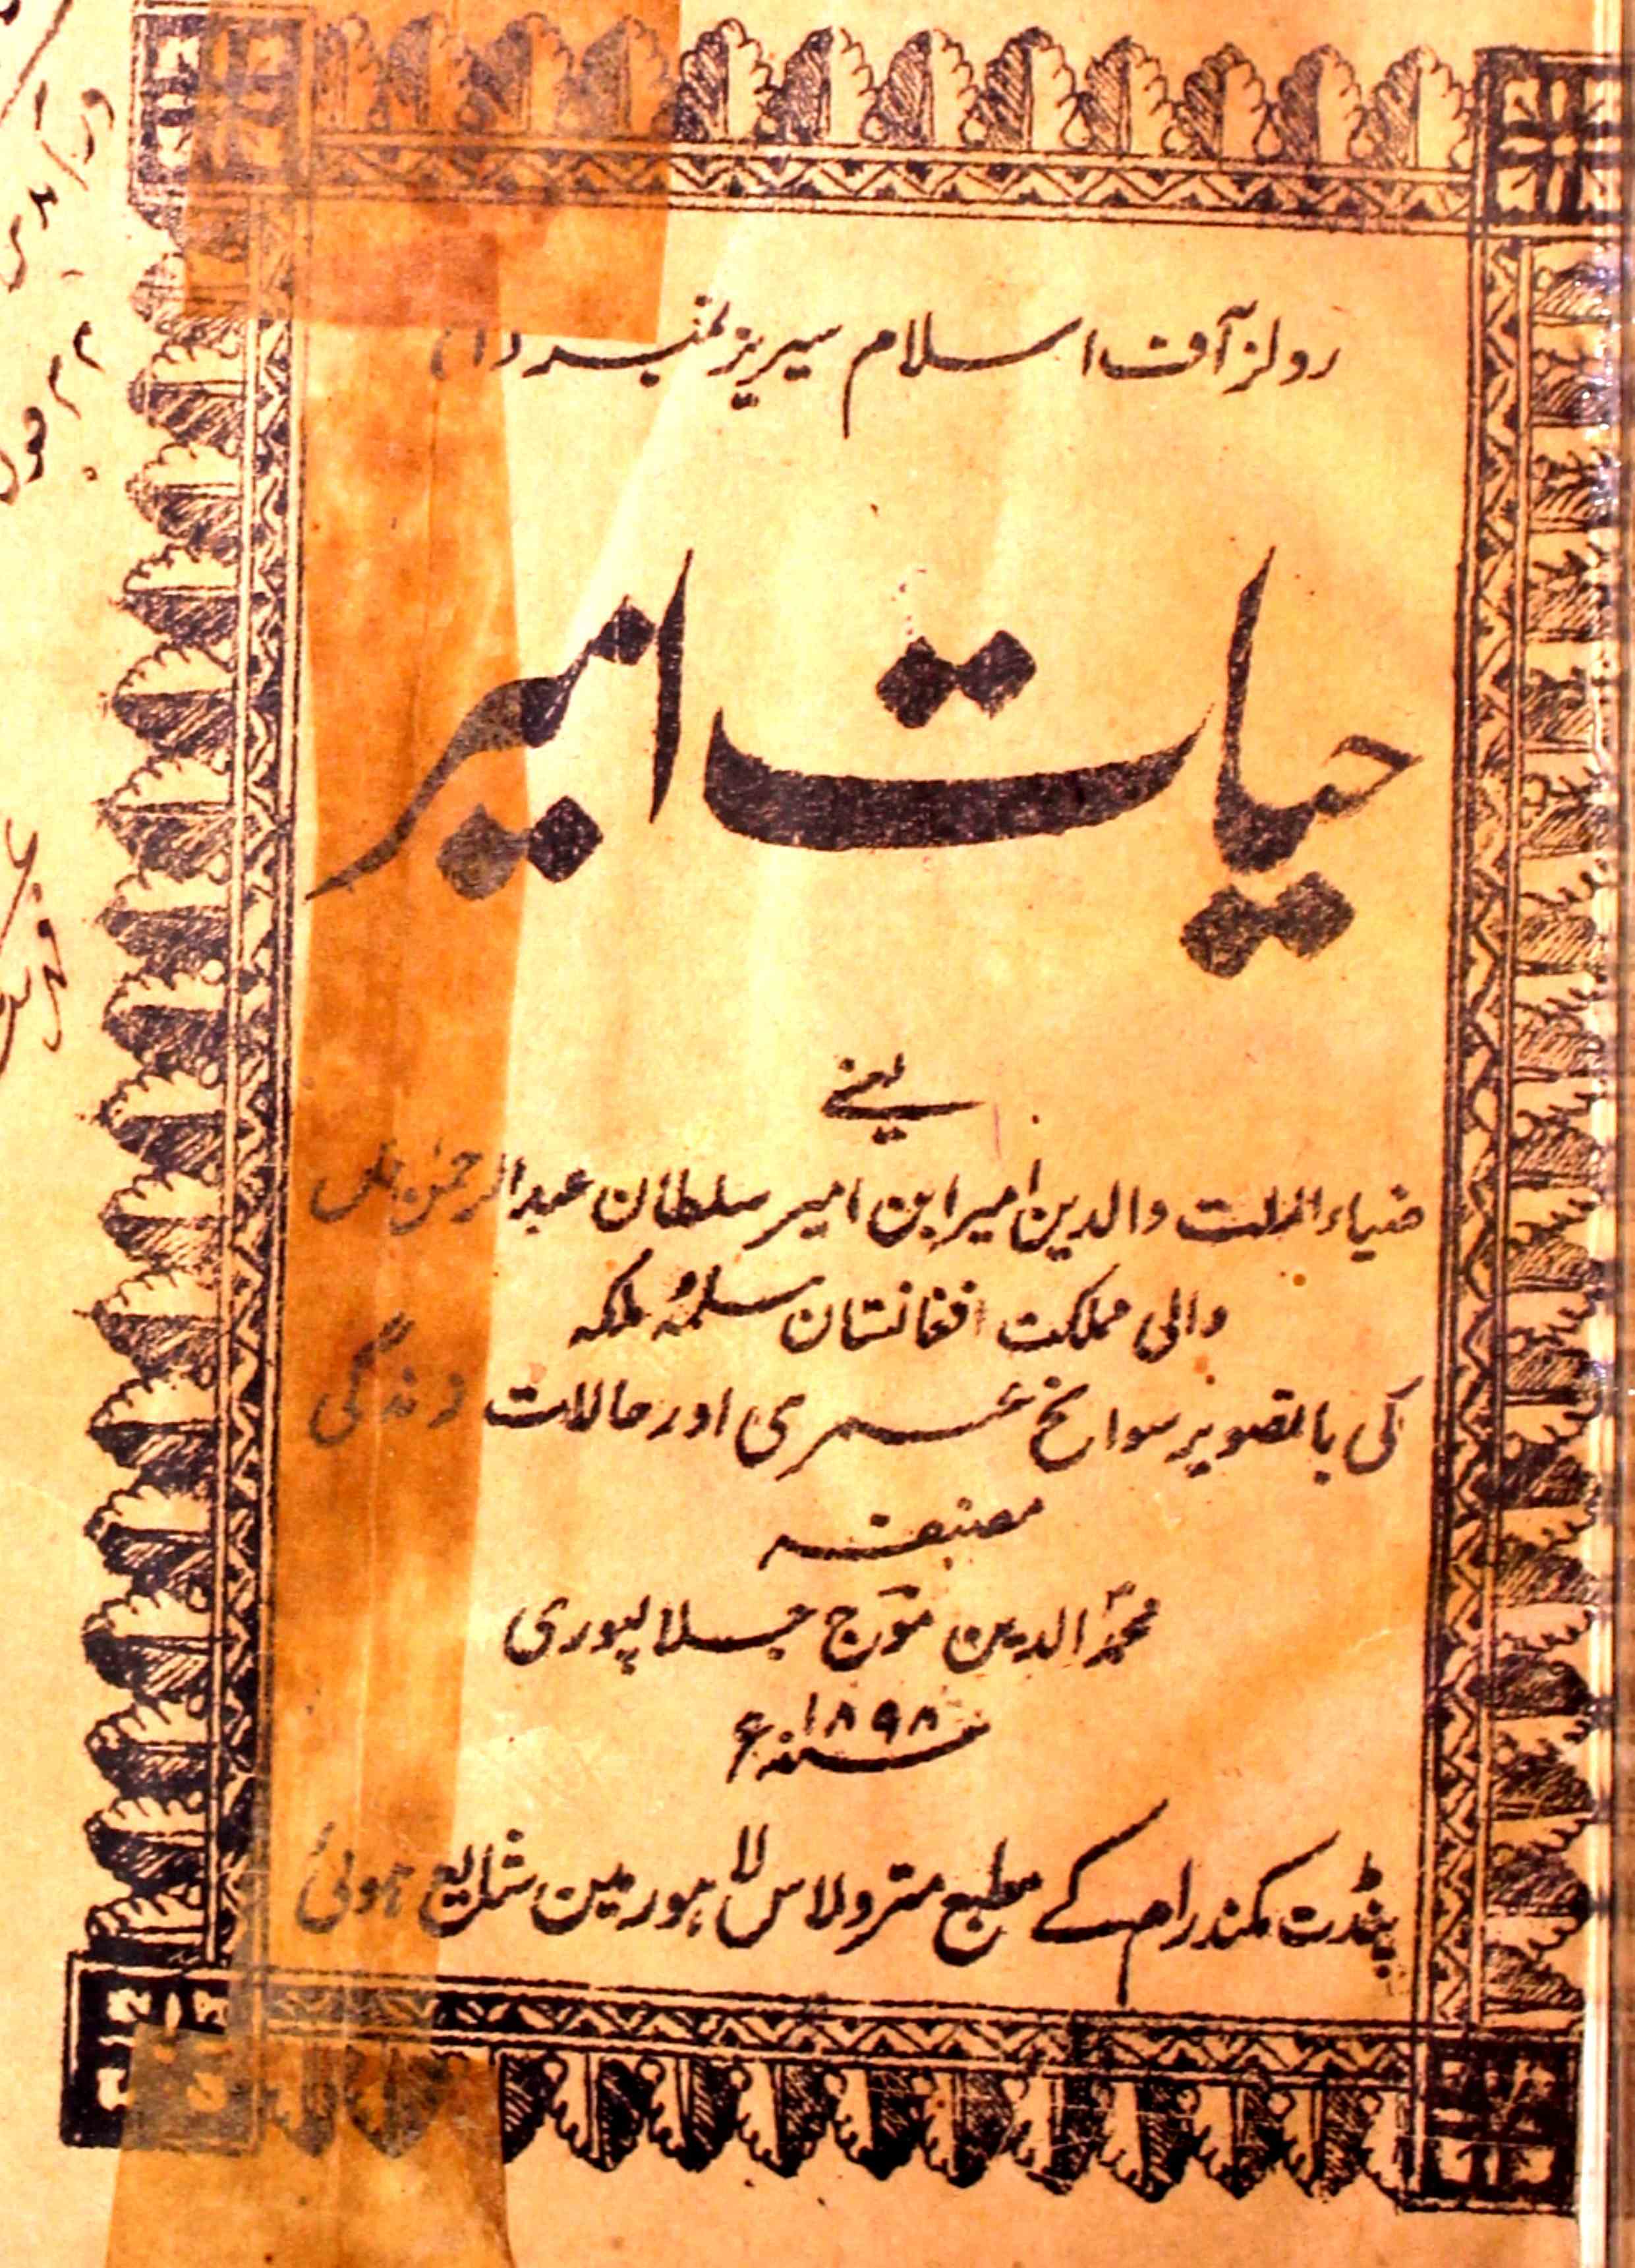 رولز آف اسلام سیریز نمبر (۱)
حیات امیر
یعنے
ضیاء الملت والدین امیر ابن امیر سلطان عبدالرحمٰن
والی مملکت افغانستان سلمہٗ ملکہ
کی باتصویر سوانح عمری اور حالات زندگی
مصنفہ
محمدالدین فوق جلالپوری
سنہ ۱۸۹۸ء
پنڈت مکندرام کے مطبع متر ولاس لاہور مین شایع ہوئی